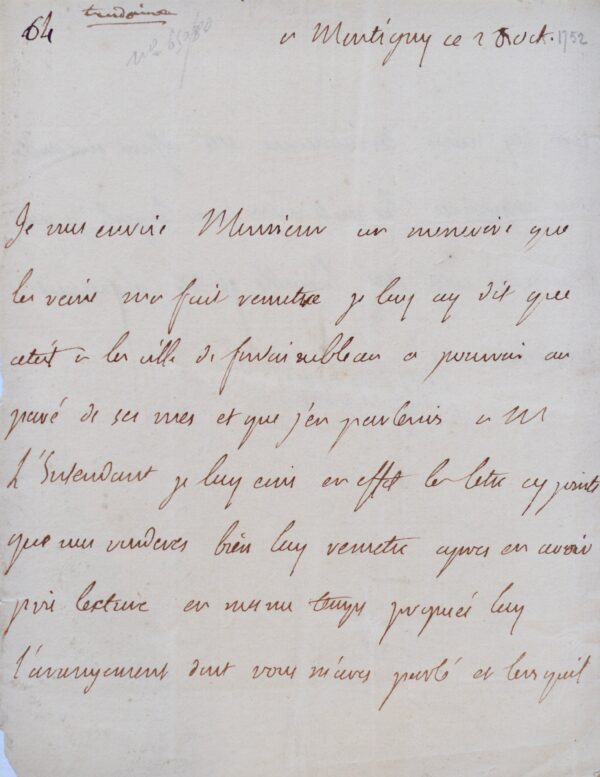 64 trudaine
a Montigny ce 2 8 oct. 1752
Je vous envoie Monsieur un memoire que
la reine m'a fait remettre je luy ay dit que
c'etoit a la ville de fontainebleau a pourvoir au
pavé de ses rues et que j'en parlerois a M
L'Intendant je luy ecris en effet la lettre cy jointe
que vous voudrez bien luy remettre apres en avoir
pris lecture en meme temps proposés luy
l'arrangement dont vous m'avés parlé et lorsquil